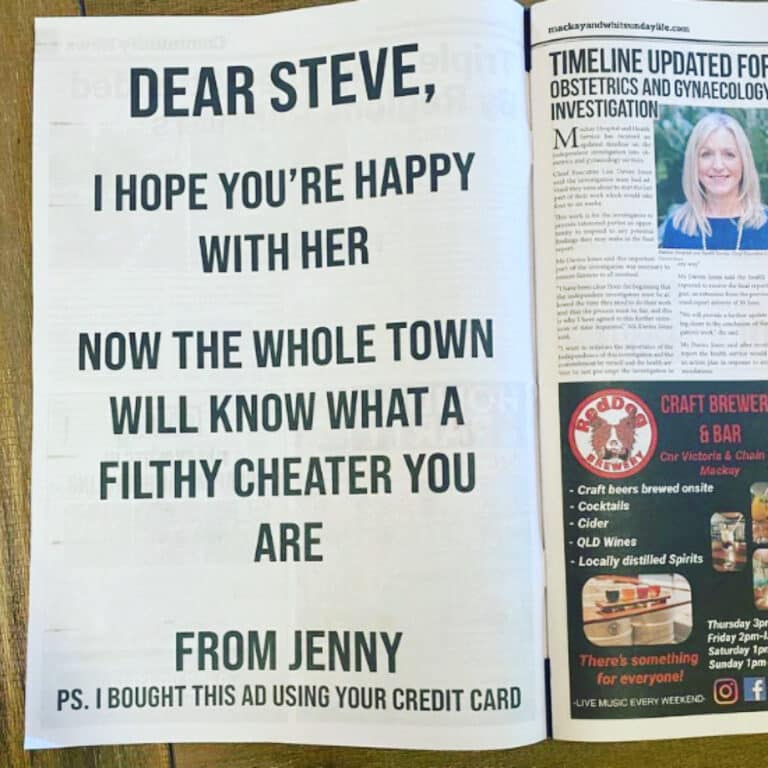 DEAR STEVE,
I HOPE YOU'RE HAPPY
WITH HER
NOW THE WHOLE TOWN
WILL KNOW WHAT A
FILTHY CHEATER YOU
ARE
FROM JENNY
PS. I BOUGHT THIS AD USING YOUR CREDIT CARD
mackayandwhitsundaylife.com
TIMELINE UPDATED FOR
OBSTETRICS AND GYNAECOLOGY
INVESTIGATION
Mackay Hospital and Health
Service has received an
updated timeline on the
independent investigation into
Chief Executive Lisa Davies Jones
said the investigation team had
they were about to start the last
part of their work which would
This work is for the investigators to
provide interested parties an
to respond to any potential
findings they may make in the final
report.
Ms Davies Jones said this important
part of the investigation was necessary to
ensure fairness to all involved.
"I have been clear from the beginning that
the independent investigators must be
the time they need to do their work
and that the process must be fair, and this
is why I have agreed to this further
of time requested," Ms Davies Jones
said.
"I want to reinforce the importance of the
independence of this investigation and the
commitment by myself and the health
to not pre-empt the investigation in
any way."
Ms Davies Jones said the health
expected to receive the final report
an extension from the previous
report delivery of 30 June.
"We will provide a further update
closer to the conclusion of the
work," she said.
Ms Davies Jones said after
report the health service would
an action plan in response to
RedDog
BREWERY
CRAFT BREWER
& BAR
Cnr Victoria & Chain
Mackay
- Craft beers brewed onsite
- Cocktails
- Cider
- QLD Wines
- Locally distilled Spirits
There's something
for everyone!
-LIVE MUSIC EVERY WEEKEND-
Thursday 3p
Friday 2pm-
Saturday 1p
Sunday 1pm